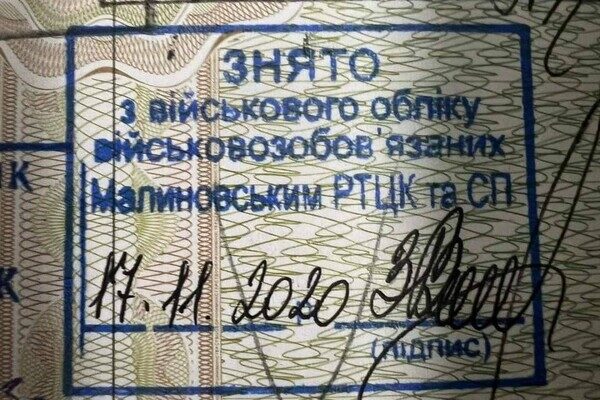 ЗНЯТО
з військового обліку
військовозобов'язаних
Малиновським РТЦК та СП
17.11.2020
(підпис)